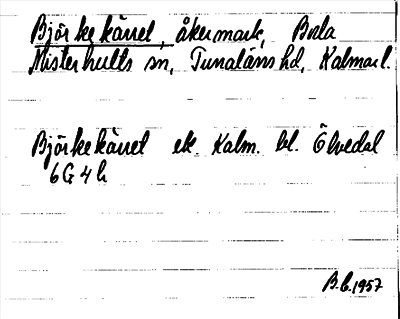 Björkekärret, åkermark, Bola
Misterhults sn, Tunaläns hd, Kalmar l.
Björkekärret ek. Kalm. bl. Ölvedal
6G4h
B.C. 1957